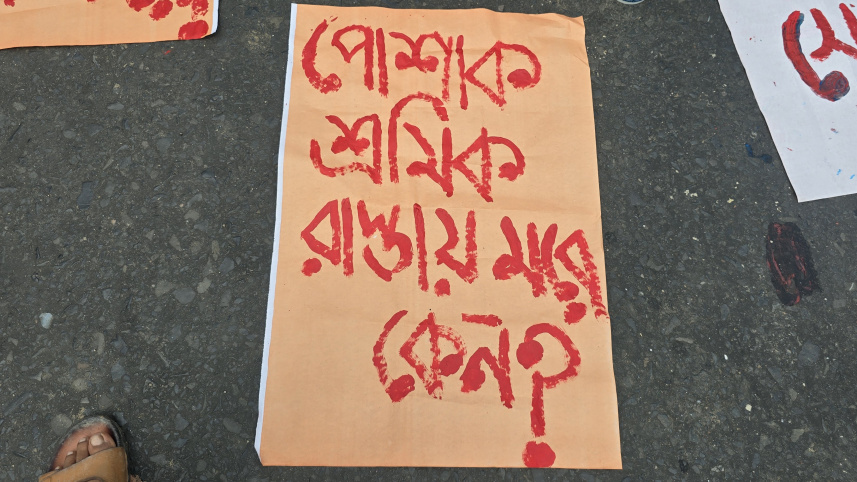 পোশাক
শ্রমিক
রাস্তায় মার
কেন?